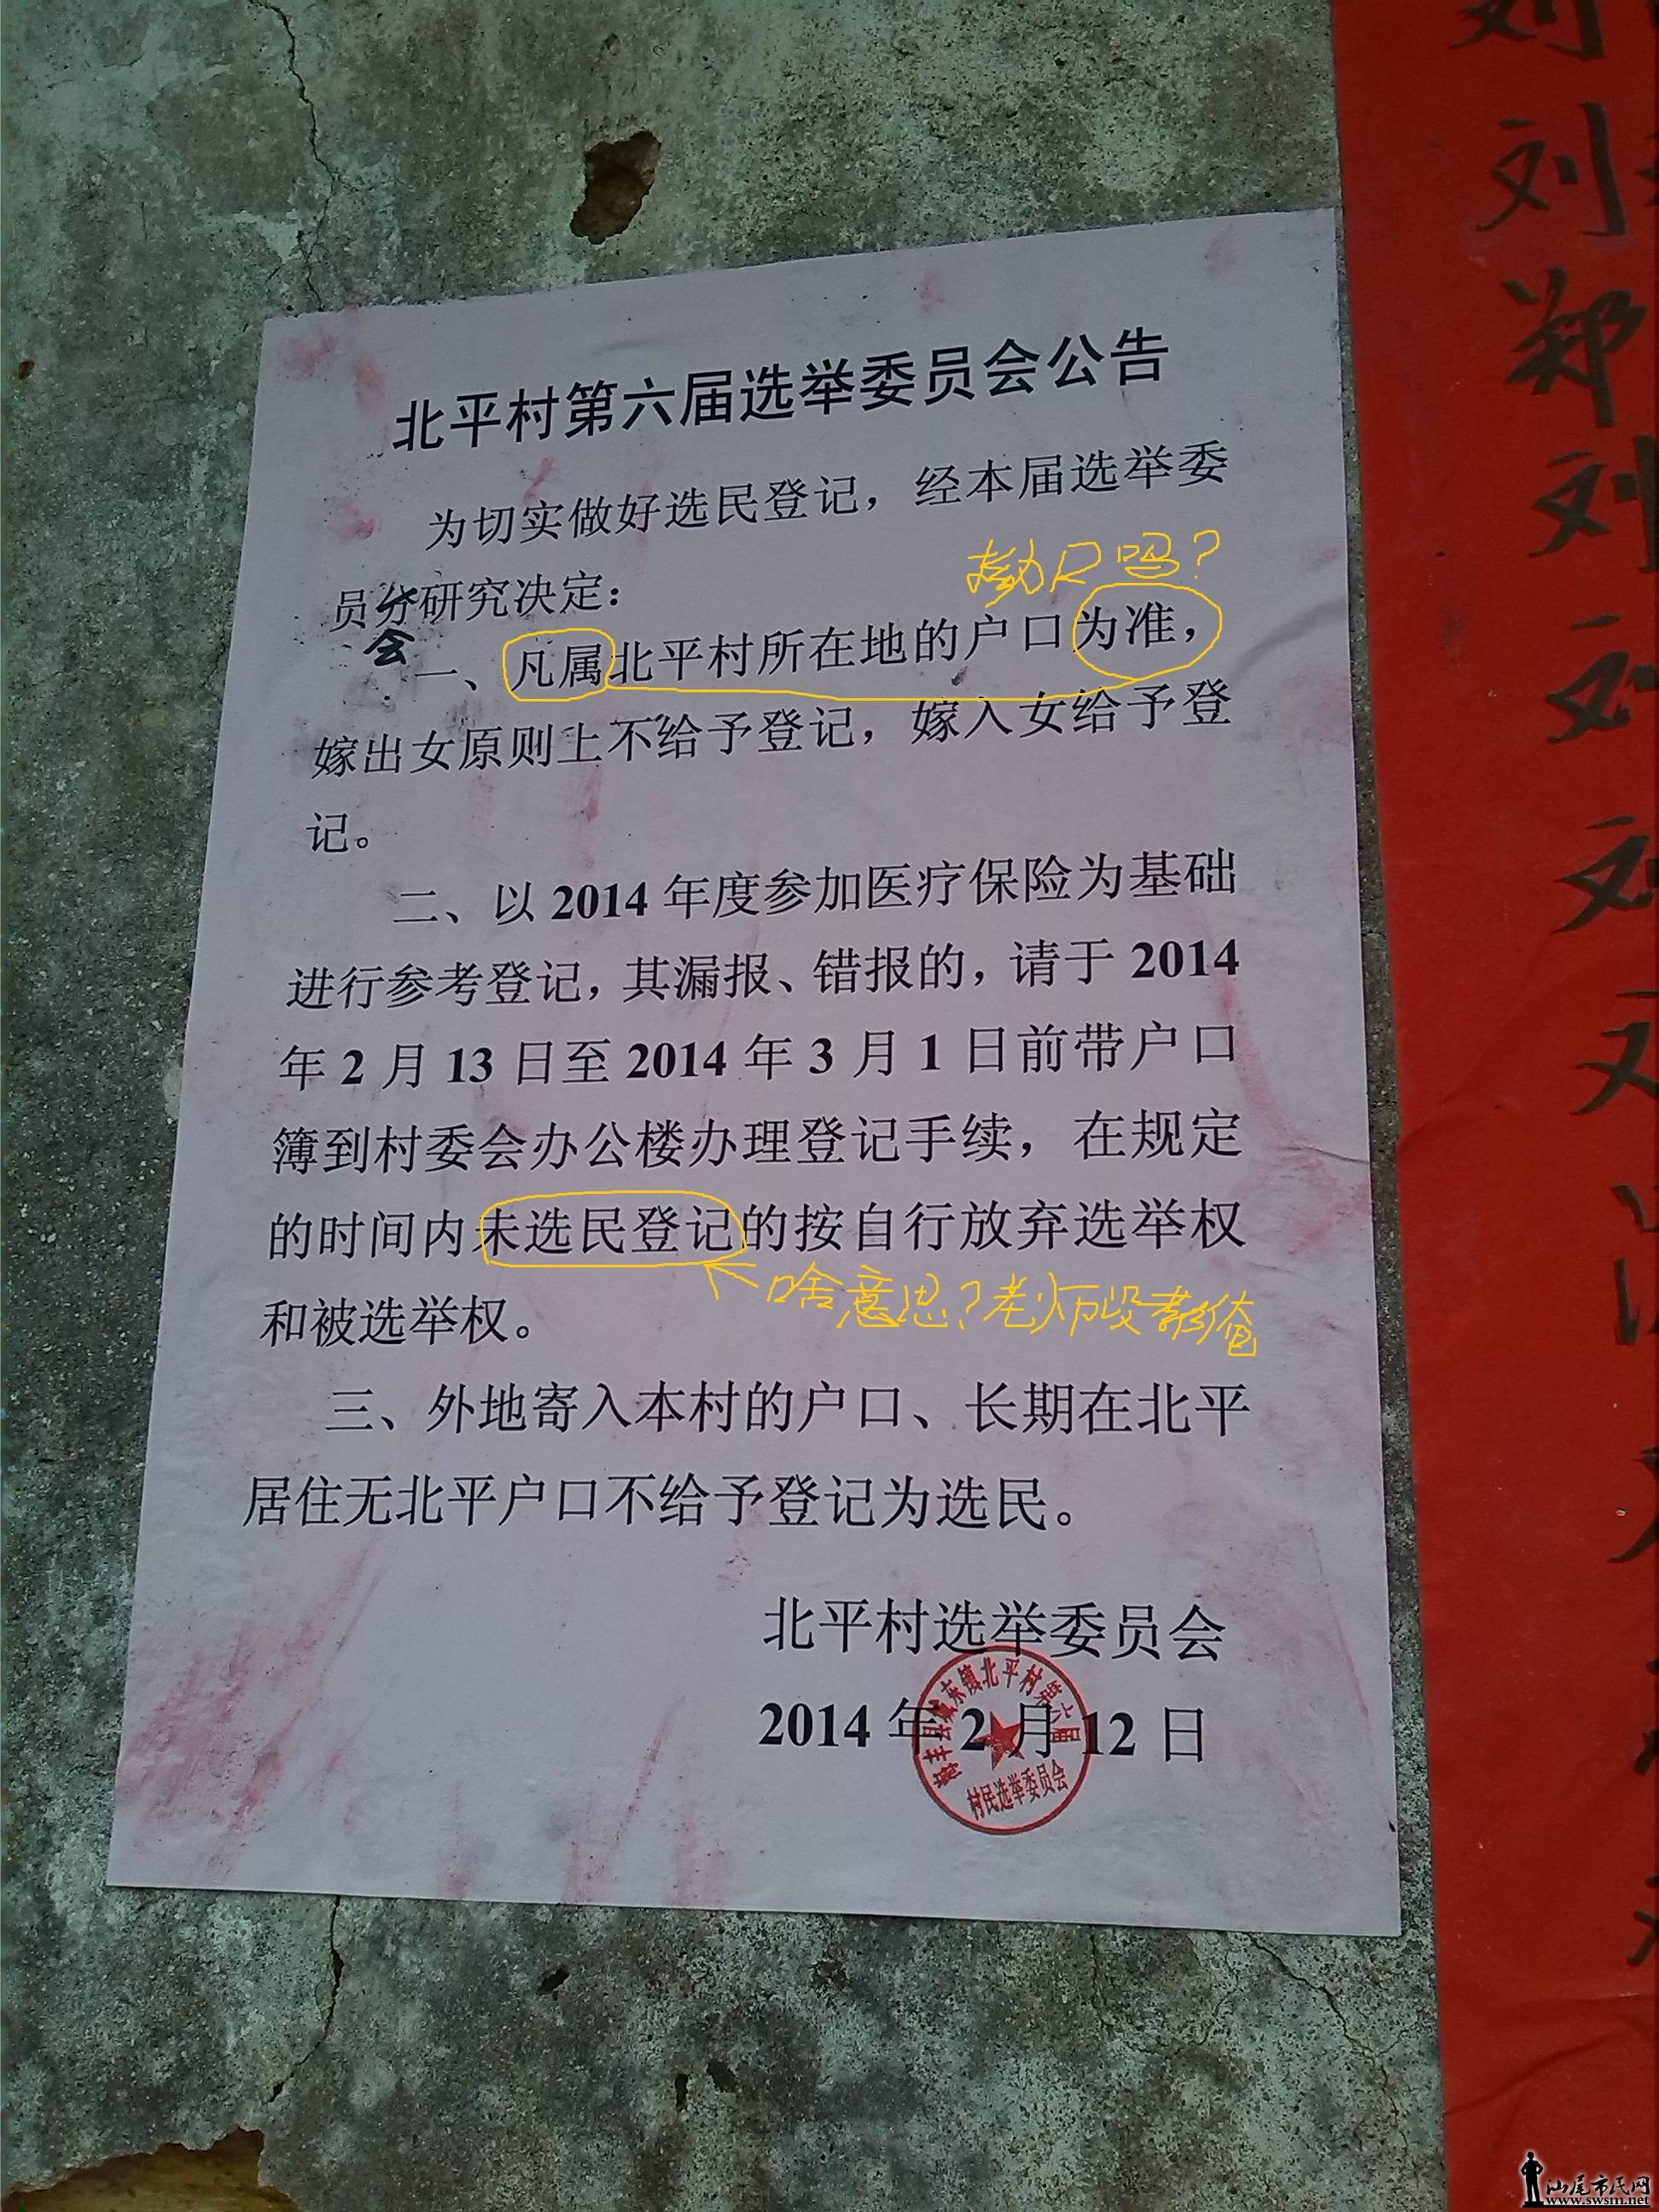 北平村第六届选举委员会公告
为切实做好选民登记，经本届选举委
拗口吗？
员分研究决定：
会
一、凡属北平村所在地的户口为准，
嫁出女原则上不给予登记，嫁入女给予登
记。
二、以2014年度参加医疗保险为基础
进行参考登记，其漏报、错报的，请于2014
年2月13日至2014年3月1日前带户口
簿到村委会办公楼办理登记手续，在规定
的时间内未选民登记的按自行放弃选举权
啥意思？老师没教俺
和被选举权。
三、外地寄入本村的户口、长期在北平
居住无北平户口不给予登记为选民。
北平村选举委员会
2014年2月12日
海丰县城东镇北平村第六届
村民选举委员会
刘
刘
郑
刘
刘
刘
汕尾市民网
www.swsm.net